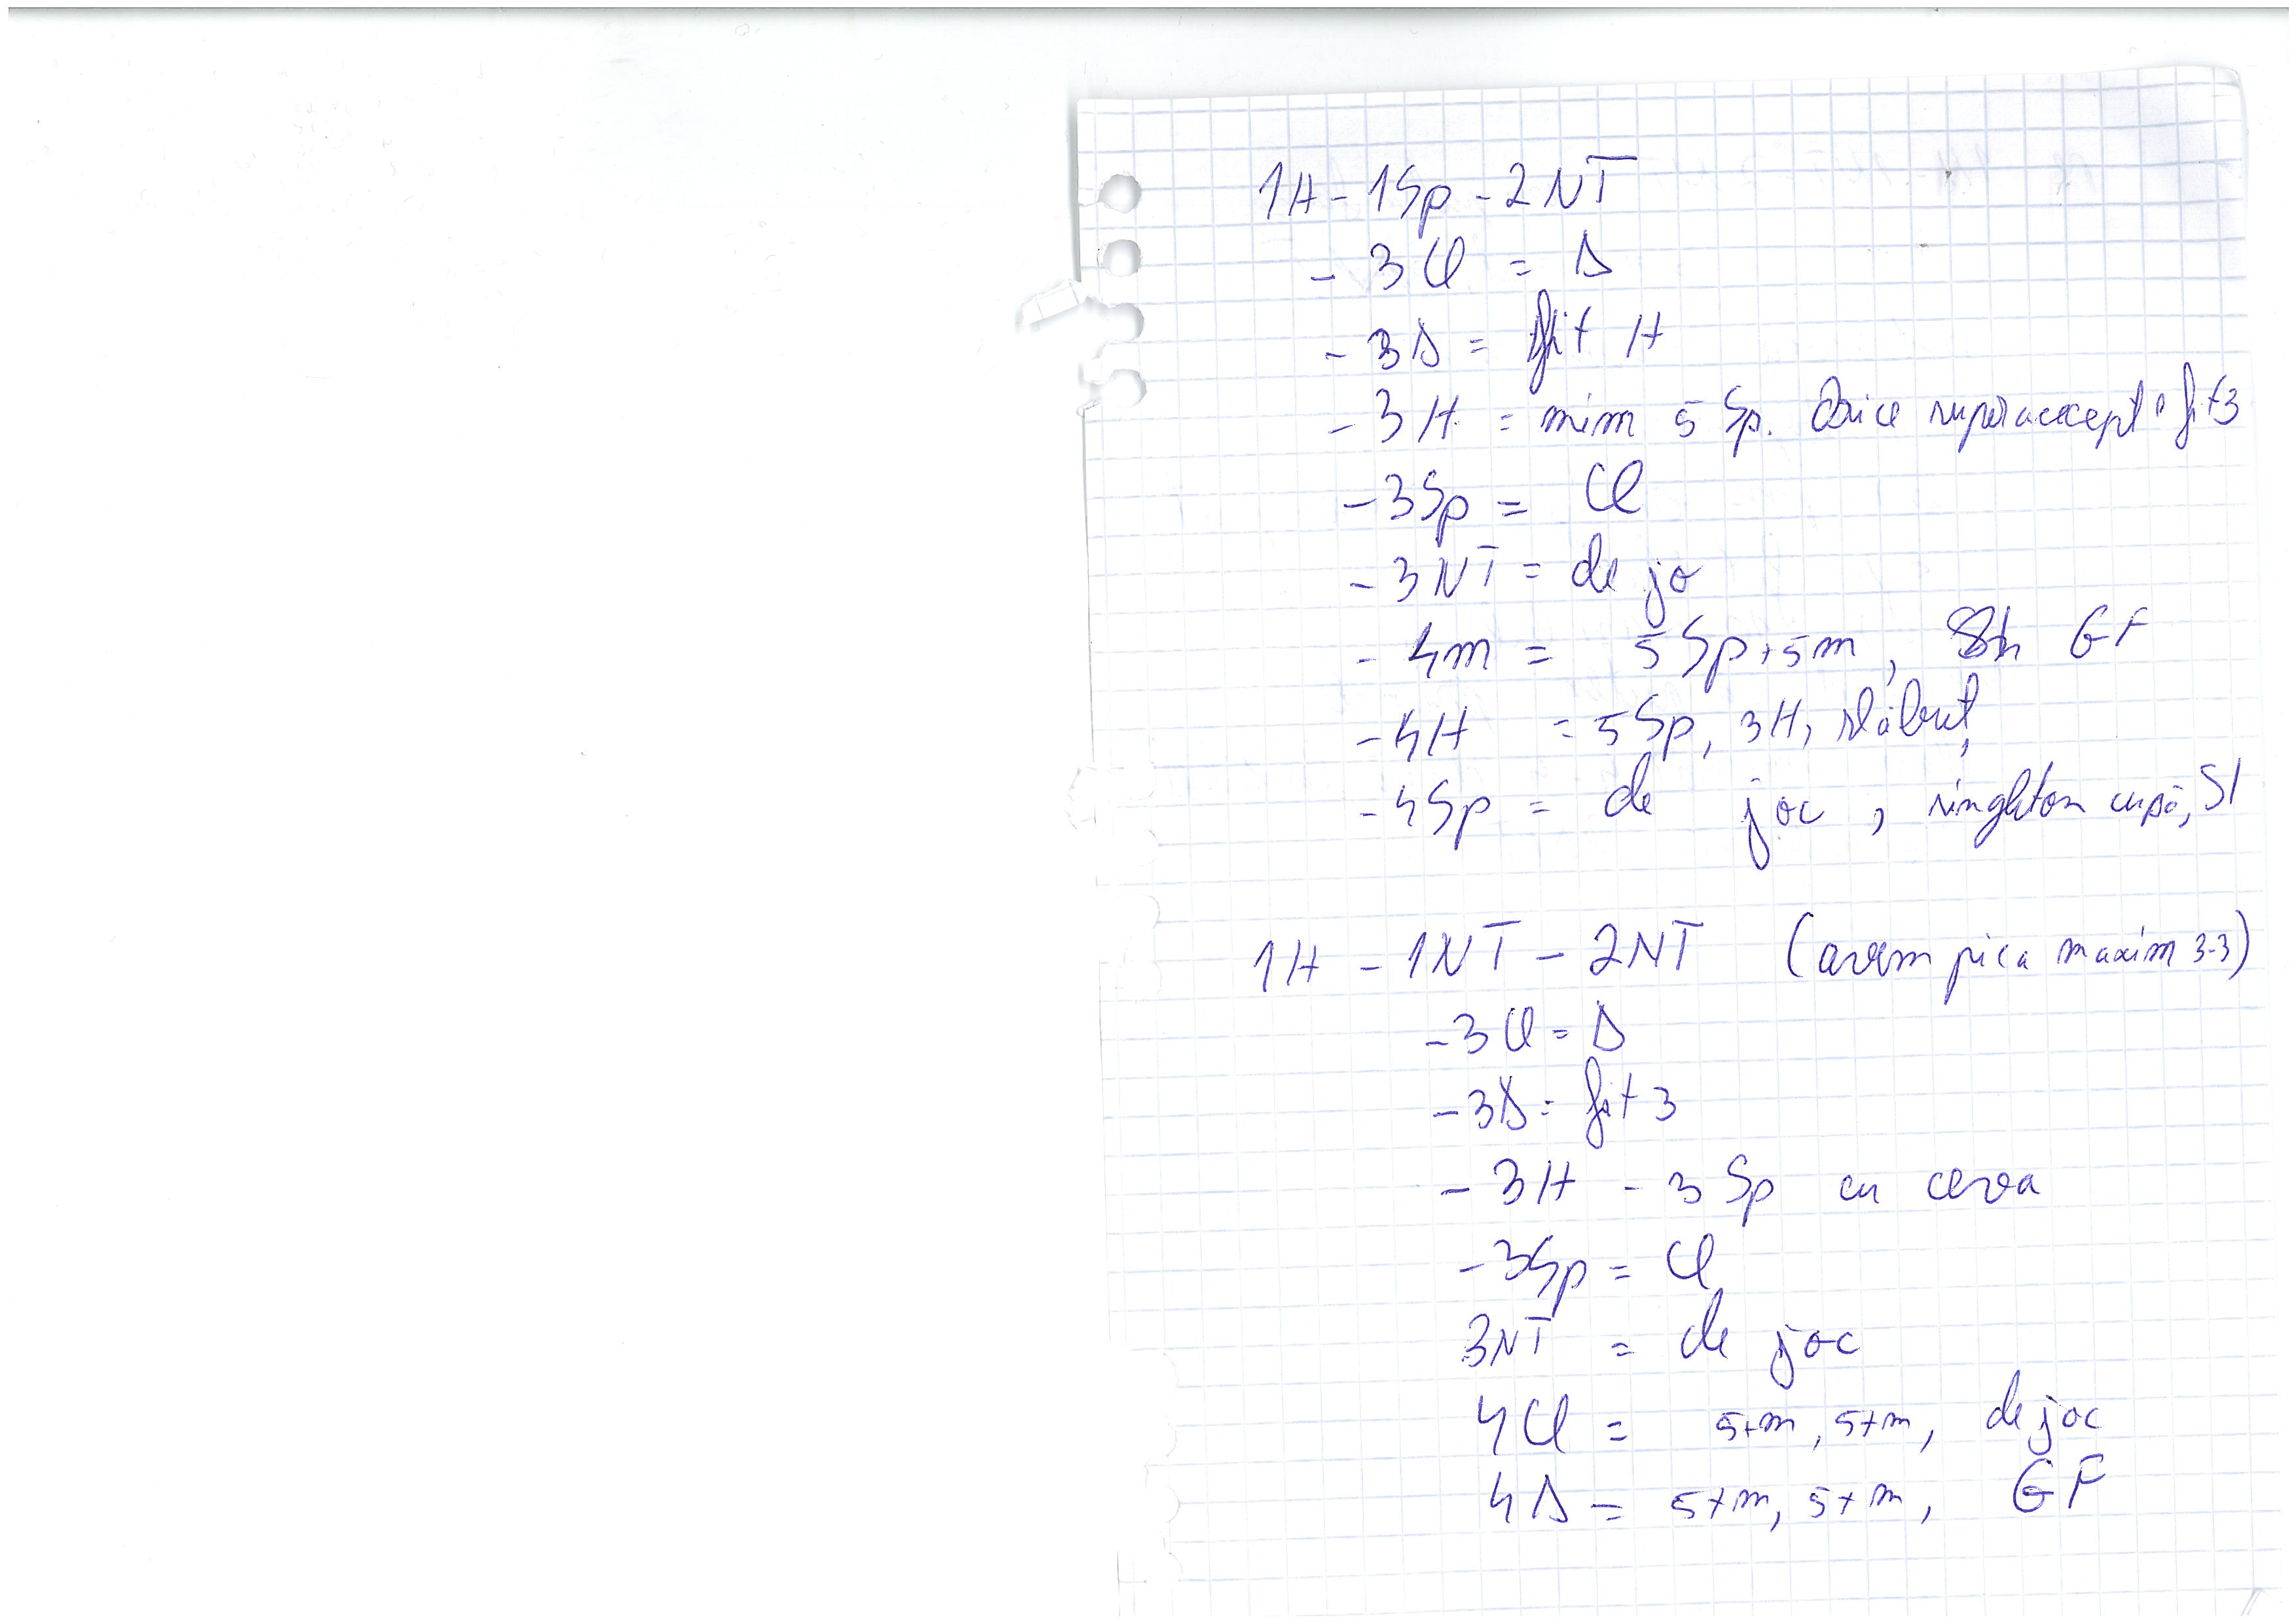 1H - 1Sp - 2NT
- 3Cl = D
- 3D = fit H
- 3H = mim 5 Sp. Orice superaccept = fit3
- 3Sp = Cl
- 3NT = de jo
- 4m = 5Sp+5m, GF
- 4H = 5Sp, 3H, slăbuț
- 4Sp = de joc, singleton cupă, SI
1H - 1NT - 2NT (avem pica maxim 3-3)
- 3Cl = D
- 3D = fit 3
- 3H - 3 Sp cu ceva
- 3Sp = Cl
3NT = de joc
4Cl = 5+m, 5+m, de joc
4D = 5+m, 5+m, GF